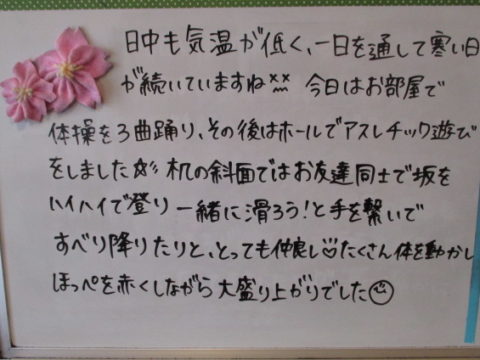 日中も気温が低く、一日を通して寒い日
が続いていますね×× 今日はお部屋で
体操を3曲踊り、その後はホールでアスレチック遊び
をしました☆彡 机の斜面ではお友達同士で坂を
ハイハイで登り一緒に滑ろう!と手を繋いで
すべり降りたりと、とっても仲良し♡たくさん体を動かし
ほっぺを赤くしながら大盛り上がりでした☺